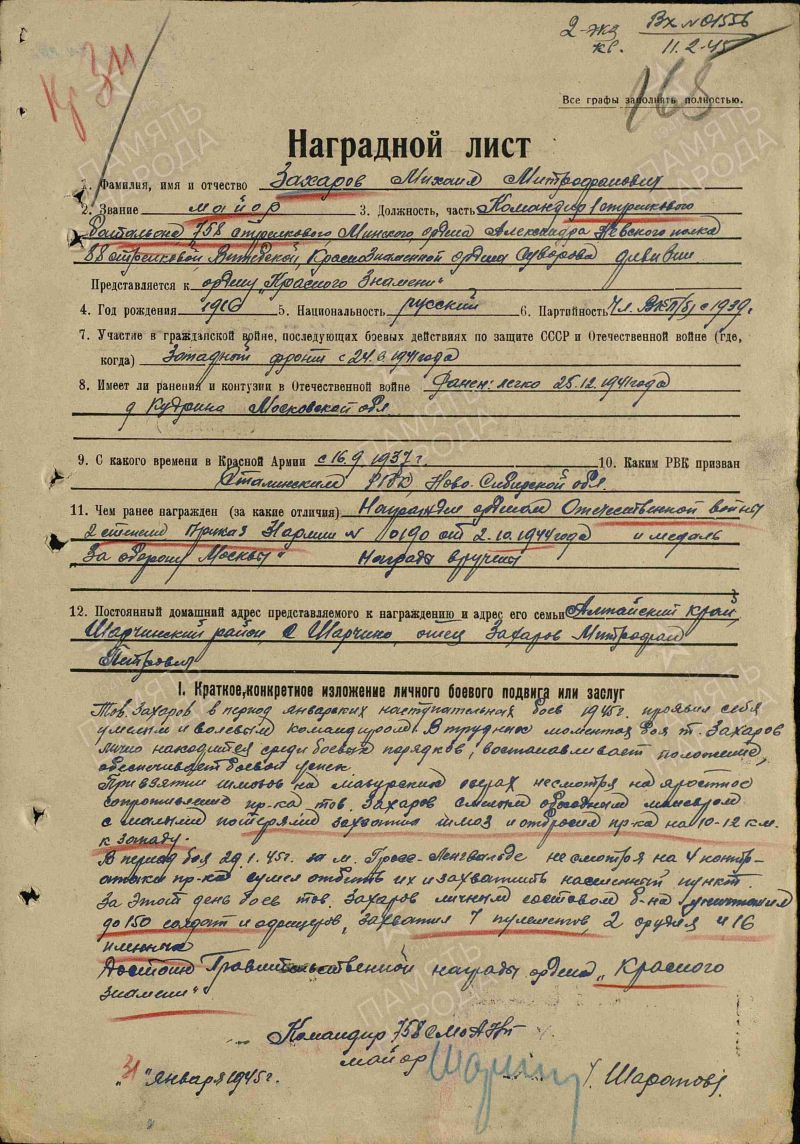 2-
кв.
Вх №01556
11.2.45
Кр Зн
168
Все графы заполнять полностью.
Наградной лист
1. Фамилия, имя и отчество Захаров Михаил Митрофанович
2. Звание майор 3. Должность, часть Командир 1 стрелкового
батальона 758 стрелкового, Минского, ордена Александра Невского полка
88 стрелковой, Витебской, Краснознаменной ордена Суворова дивизии
Представляется к ордену „Красного Знамени"
4. Год рождения 1916 5. Национальность русский 6. Партийность Чл. ВКП/б/ с 1939г.
7. Участие в гражданской войне, последующих боевых действиях по защите СССР и Отечественной войне (где,
когда) Западный фронт с 24.6.1941 года
8. Имеет ли ранения и контузии в Отечественной войне Ранен: легко 25.12.1941 года
д. Кудрина Московской обл
9. С какого времени в Красной Армии с 16.9.1937г. 10. Каким РВК призван
Сталинским РВК, Ново-Сибирской обл.
11. Чем ранее награжден (за какие отличия) Награжден орденом Отечественной войны
2 степени Приказ № 0190 от 2.10.1944 года и медаль
За оборону Москвы" Награды вручены
12. Постоянный домашний адрес представляемого к награждению и адрес его семьи Алтайский край,
Шарчинский район, с Шарчино, отец Захаров Митрофан
Петрович
I. Краткое, конкретное изложение личного боевого подвига или заслуг
Тов. Захаров в период январских наступательных боев 1945г. проявил себя
умелым и волевым командиром. В трудные моменты боя т. Захаров
лично находится среди боевых порядков, востанавливает положение,
обеспечивает боевой успех.
При взятии шлюзов на мазурских озерах несмотря на яростное
сопротивление пр-ка тов. Захаров смелым обходным маневром
с малыми потерями захватил шлюз и отбросил пр-ка на 10-12 км.
к западу.
В период боя 29.1.45г. за м. Гросс- не смотря на 4 контр-
атаки пр-ка сумел отбить их и захватить населенный пункт.
За этот день боев тов. Захаров личным составом б-на уничтожил
до 150 солдат и офицеров, захватил 7 пулеметов, 2 орудия и 16
пленных
Достоин Правительственной награды ордена „Красного
Знамени"
Командир 758
майор /Шарапов/
„31" января 1945г.
ПАМЯТЬ НАРОДА